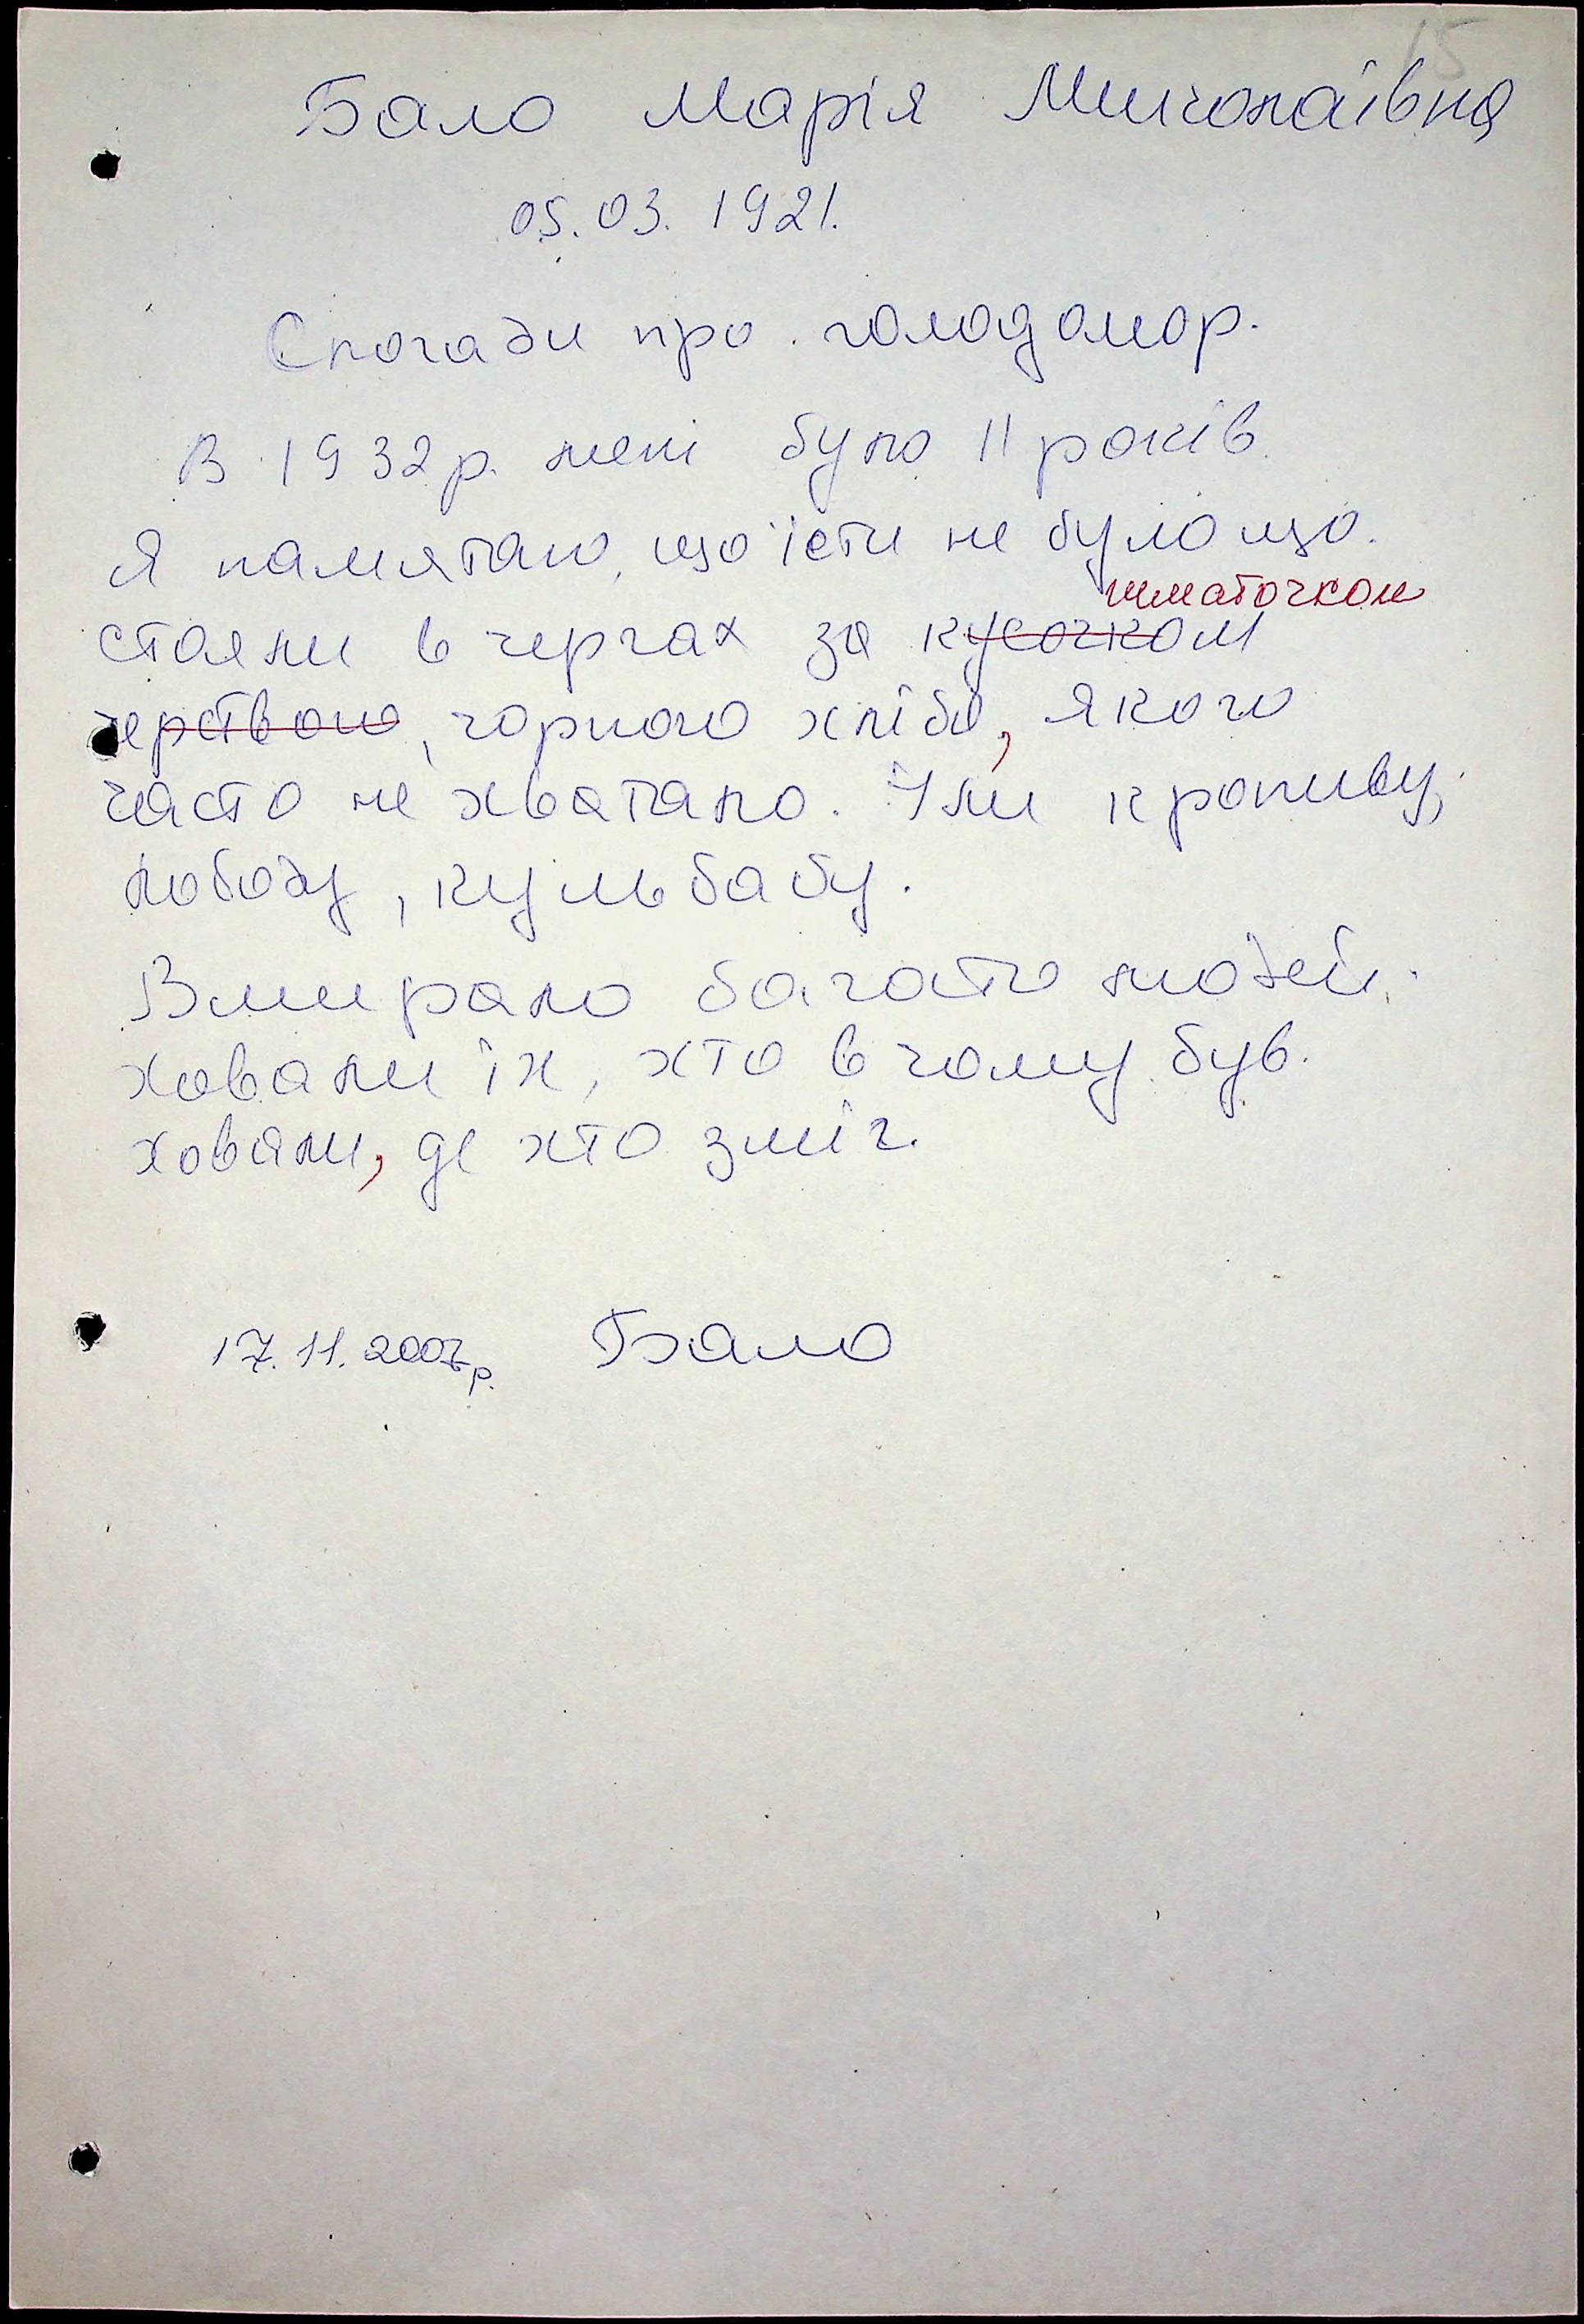 15
Бало Марія Миколаївна
05.03.1921.
Спогади про голодомор.
В 1932р. мені було 11 років.
Я памятаю, що їсти не було що.
шматочком
стояли в чергах за кусочком
черствого, чорного хліба, якого
часто не хватало. Їли кропиву,
лободу, кульбабу.
Вмирало багато людей.
ховали їх, хто в чому був.
ховали, де хто зміг.
17.11.2007р. Бало